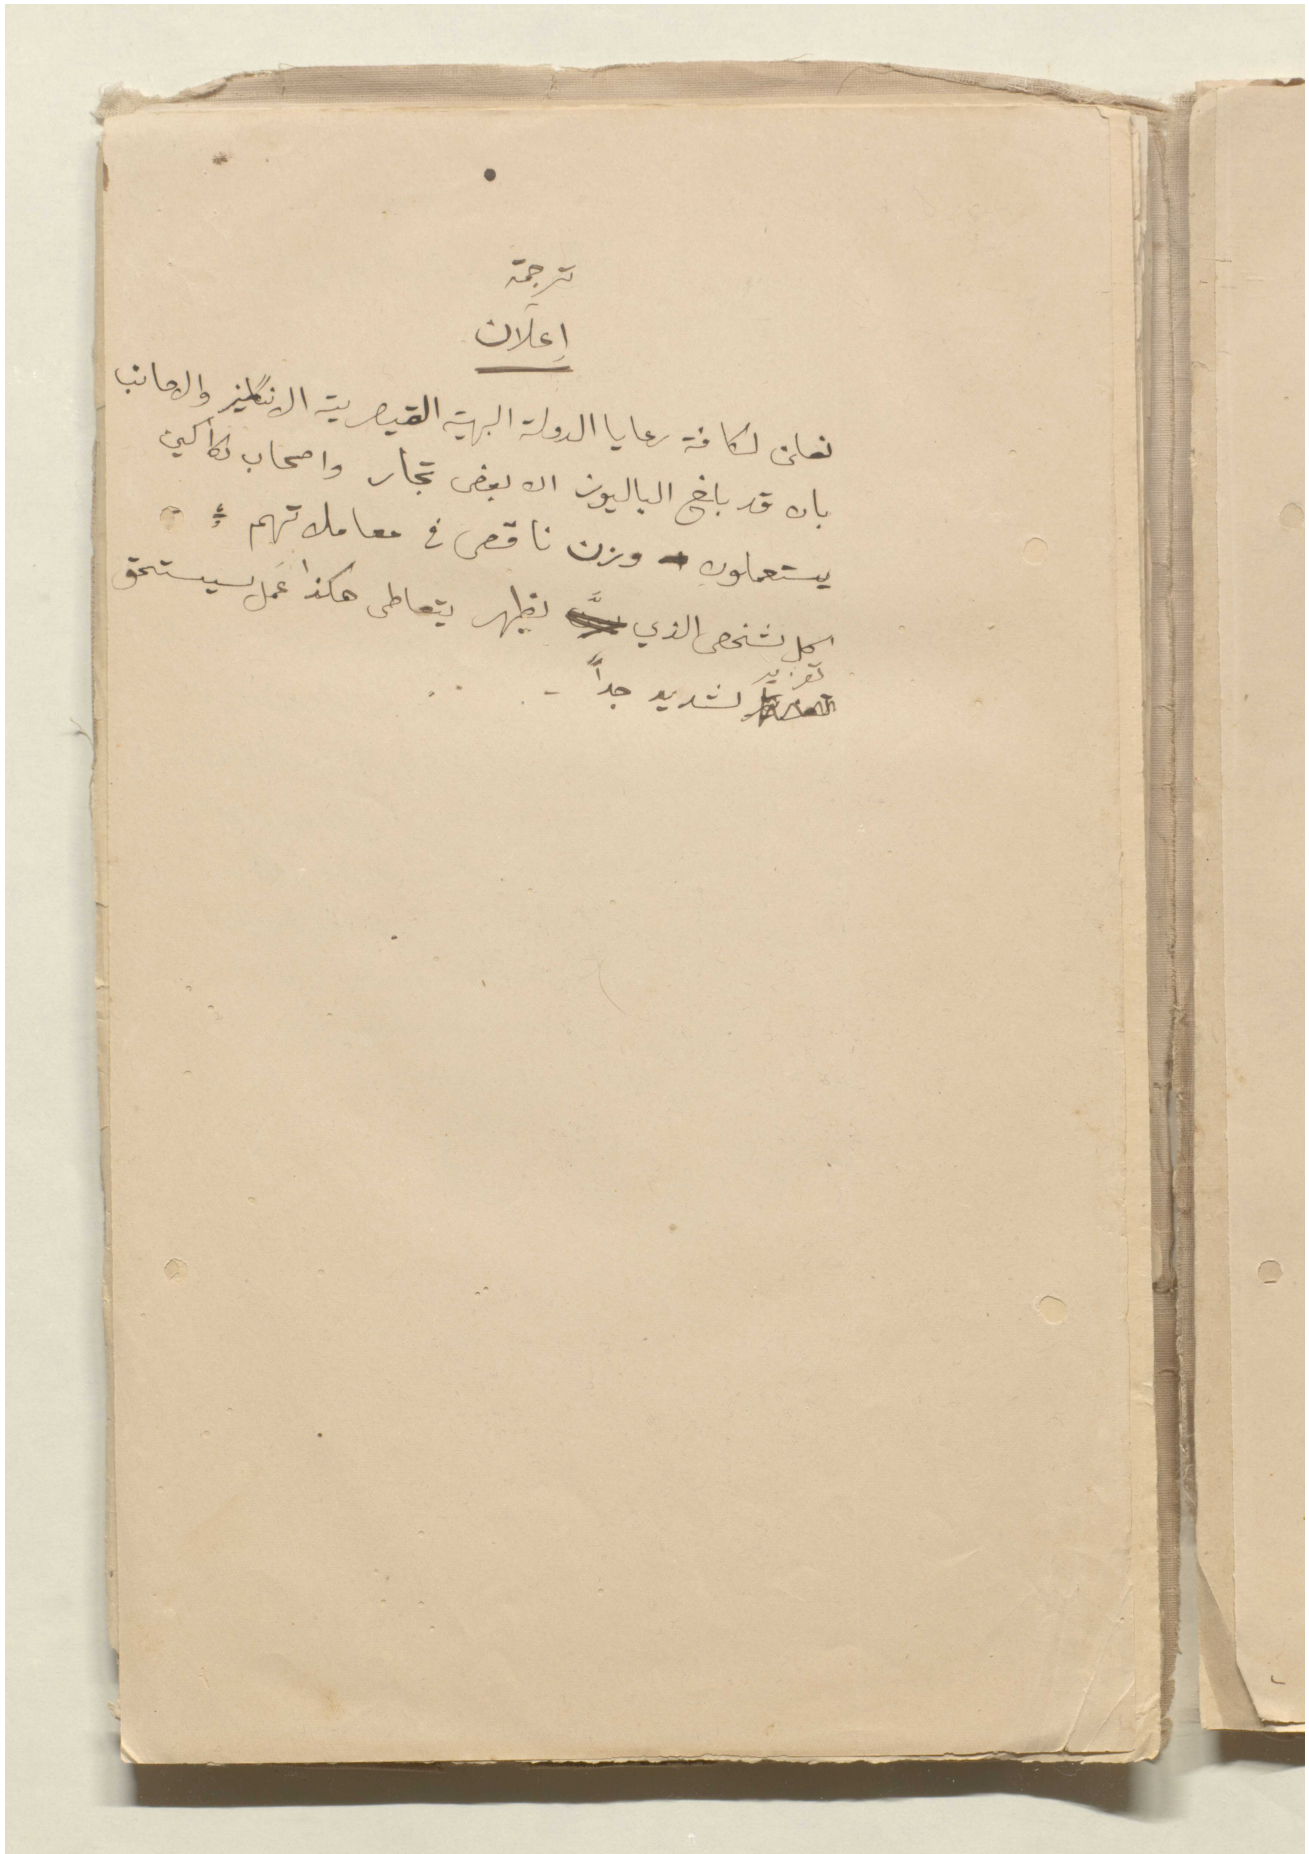 ترجمة
إعلان
نعلن لكافة رعايا الدولة البهية القيصرية الانگليز والاجانب
بان قد بلغ الباليوز ان بعض تجار واصحاب دكاكين
يستعملون وزن ناقص في معاملاتهم
كل شخص الذي يظهر يتعاطى هكذا عمل سيستحق
تعزير شديد جداً -